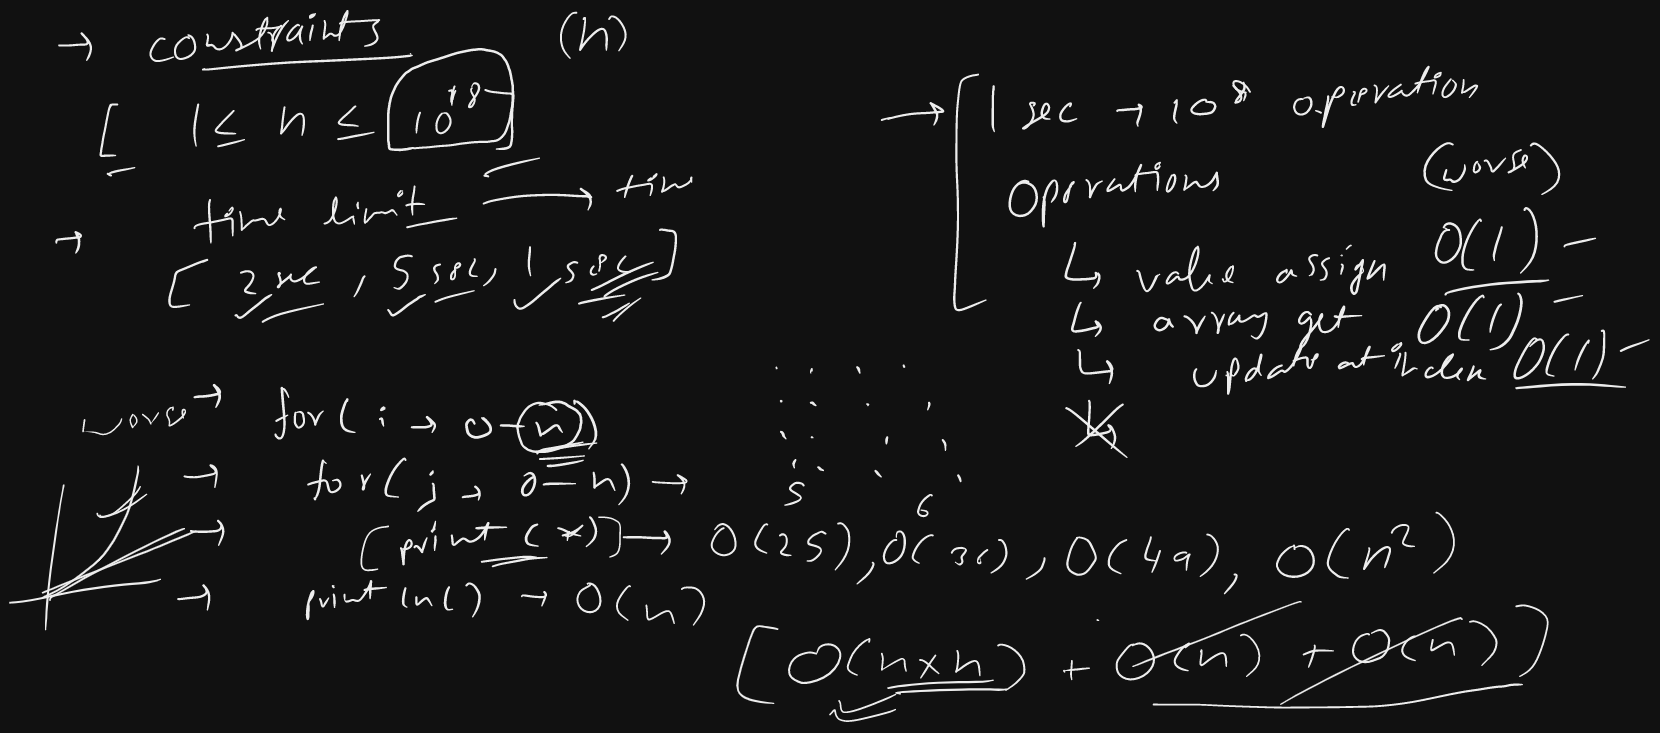 → constraints (n)
[ 1 ≤ n ≤ 10^18
→ time limit → time
[ 2 sec, 5 sec, 1 sec ]
→ [ 1 sec → 10^8 operation
operations (worse)
↳ value assign O(1) -
↳ array get O(1) -
↳ update at index O(1) -
worse → for( i → 0-n)
→ for( j → 0-n) →
5 6
→ [print(*)] → O(25), O(36), O(49), O(n²)
→ println() → O(n)
[O(n×n) + O(n) + O(n)]